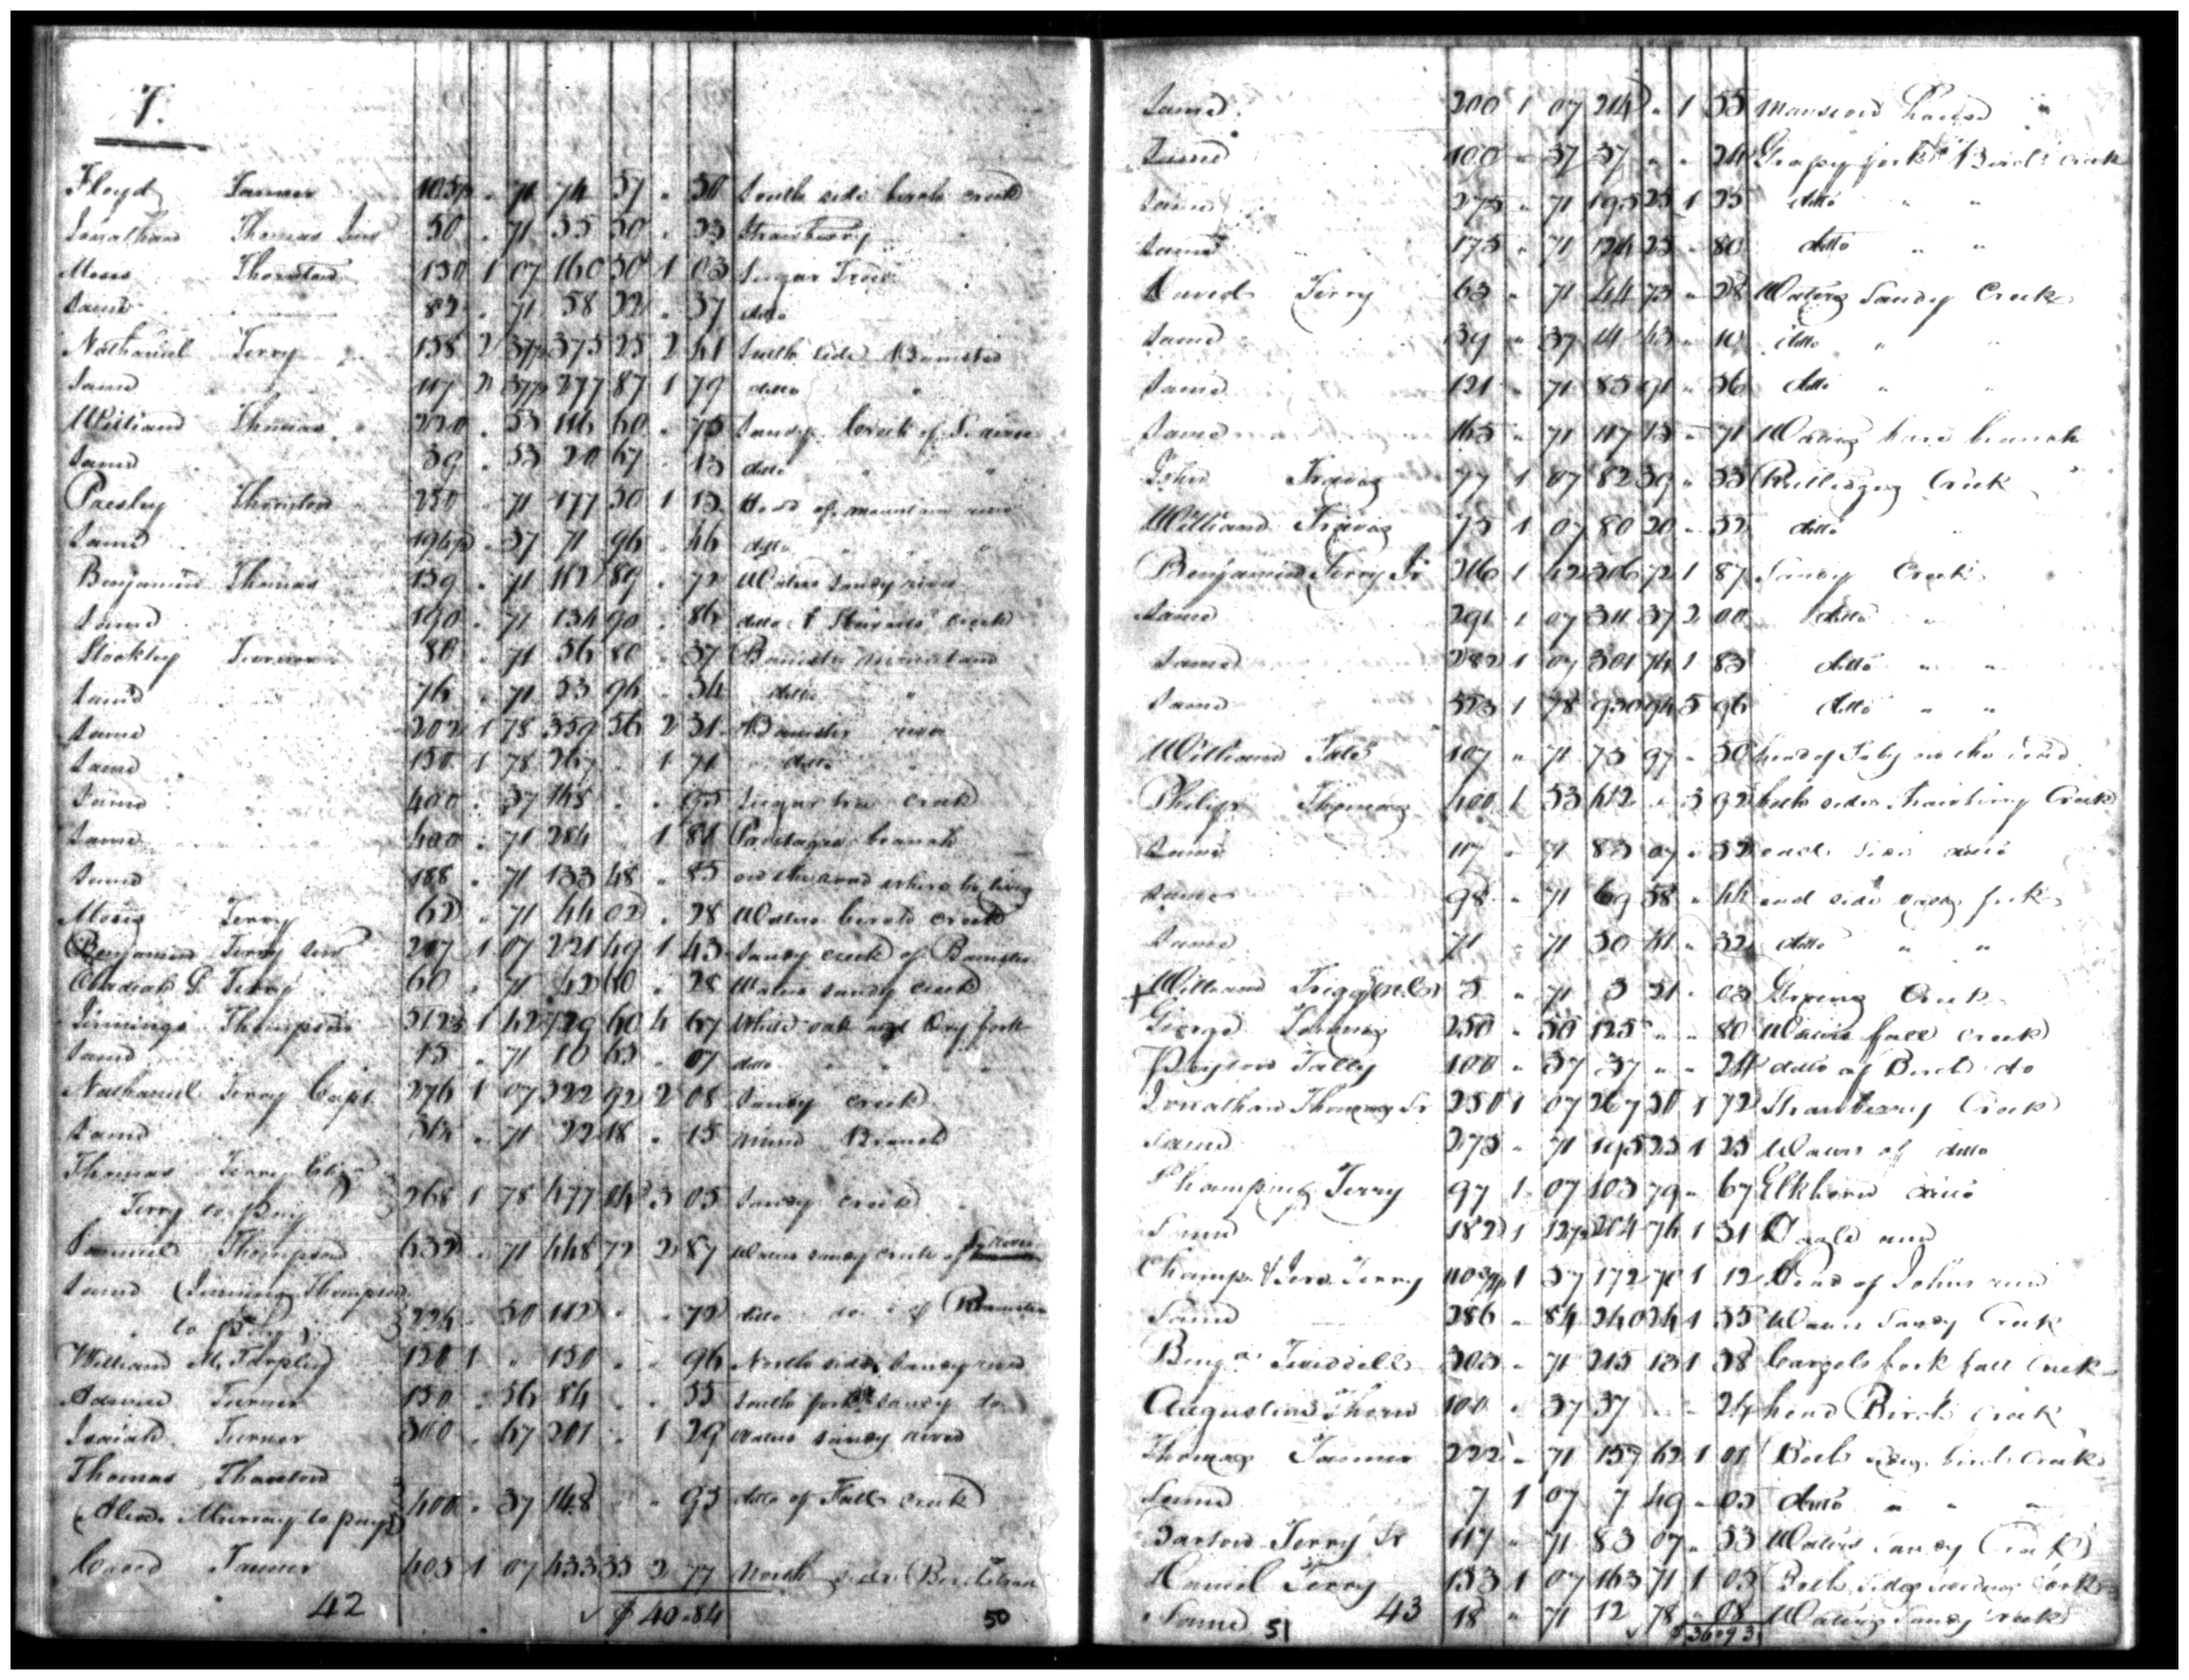 T.
Floyd Tanner 105½ " 71 74 57 " 50 South side birch creek
Jonathan Thomas Junr 50 " 71 35 50 " 23 Strawberry
Moses Thornton 150 1 07 160 50 1 03 Sugar Tree
Same 82 " 71 58 22 " 37 ditto
Nathaniel Terry 158 2 37½ 375 25 2 41 South side Banister
Same 117 2 37½ 277 87 1 79 ditto "
William Thomas 220 " 53 116 60 " 75 Sandy Creek of S. river
Same 39 " 53 20 67 " 13 ditto " "
Presley Thornton 250 " 71 177 50 1 15 Head of mountain run
Same 194½ " 37 71 96 " 46 ditto " "
Benjamin Thomas 159 " 71 112 89 " 72 Waters Sandy river
Same 190 " 71 134 90 " 86 ditto & creek
Stockley Turner 80 " 71 56 80 " 37 Banister mountain
Same 76 " 71 53 96 " 34 ditto "
Same 202 1 78 359 56 2 31 Banister river
Same 150 1 78 267 " 1 71 ditto "
Same 400 " 37 148 " " 95 Sugar tree creek
Same 400 " 71 284 " 1 81 branch
Same 188 " 71 133 48 " 85 on the road where he lives
Moses Terry 62 " 71 44 02 " 28 Waters birch creek
Benjamin Terry Senr 207 1 07 221 49 1 43 Sandy creek of Banister
Obadiah P. Terry 60 " 71 42 60 " 28 Waters Sandy creek
Jinnings Thompson 512¾ 1 42 729 60 4 67 White oak and Dry fork
Same 15 " 71 10 65 " 07 ditto " "
Nathaniel Terry Capt. 276 1 07 322 92 2 08 Sandy creek
Same " 71 22 18 " 15 Branch
Thomas Terry
Terry to pay 268 1 78 477 04 3 05 Sandy creek
Samuel Thompson 632 " 71 448 72 2 87 Waters Sandy creek of S. river
Same (Jinnings Thompson
to pay) 224 " 50 112 " " 72 ditto do of Banister
William M. Tarpley 150 1 " 150 " " 96 North side Sandy river
Turner 150 " 56 84 " " 55 South fork Sandy do
Isaiah Turner 300 " 67 201 " 1 29 Waters Sandy river
Thomas
Murray to pay) 400 " 37 148 " " 95 ditto of Fall creek
Creed Tanner 405 1 07 433 35 2 77 North side Birch
42 ✓ $ 40.84 50
Same 200 1 07 214 " 1 35 Mansion House
Same 100 " 37 37 " " 24 Grassy fork Birch Creek
Same 275 " 71 195 25 1 25 ditto " "
Same 175 " 71 124 25 " 80 ditto " "
David Terry 63 " 71 44 73 " 28 Waters Sandy Creek
Same 39 " 37 14 43 " 10 ditto " "
Same 121 " 71 85 91 " 56 ditto " "
Same 165 " 71 117 15 " 71 Waters branch
John Travis 77 1 07 82 39 " 53 Rutledges Creek
William Travis 75 1 07 80 20 " 52 ditto "
Benjamin Terry Jr 216 1 42 306 72 1 87 Sandy Creek
Same 291 1 07 311 37 2 00 ditto "
Same 282 1 07 301 74 1 83 ditto " "
Same 523 1 78 930 94 5 96 ditto " "
William Tate 107 " 71 75 97 " 50 head of Toby on the road
Philip Thomas 400 1 53 612 " 3 92 both sides Strawberry Creek
Same 117 " 71 83 07 " 52 each side ditto
Same 98 " 71 69 58 " 44 each side fork
Same 71 " 71 50 41 " 32 ditto " "
+ William Trigg 5 " 71 3 51 " 03 Creek
George 250 " 50 125 " " 80 Waters fall creek
Peyton Tally 100 " 37 37 " " 24 ditto of Birch do
Jonathan Thomas Sr 250 1 07 267 50 1 72 Strawberry Creek
Same 275 " 71 195 25 1 25 Waters of ditto
Champness Terry 97 1 07 103 79 " 67 Elkhorn ditto
Same 182 1 12½ 204 76 1 31 run
Champ. & Terry 1 57 172 70 1 12 Head of Johns run
Same 286 " 84 240 24 1 55 Waters Sandy Creek
Benja Tweddell 303 " 71 215 13 1 38 Cargels fork fall Creek
Augustine Thorn 100 " 37 37 " " 24 head Birch creek
Thomas Tanner 222 " 71 157 62 1 01 Both sides birch Creek
Same 7 1 07 7 49 " 05 ditto " "
Barton Terry Sr 117 " 71 83 07 " 53 Waters Sandy Creek
Daniel Terry 153 1 07 163 71 1 05 Both sides fork
Same 18 " 71 12 78 " 08 Waters Sandy creek
51 43 ✓ $36.93